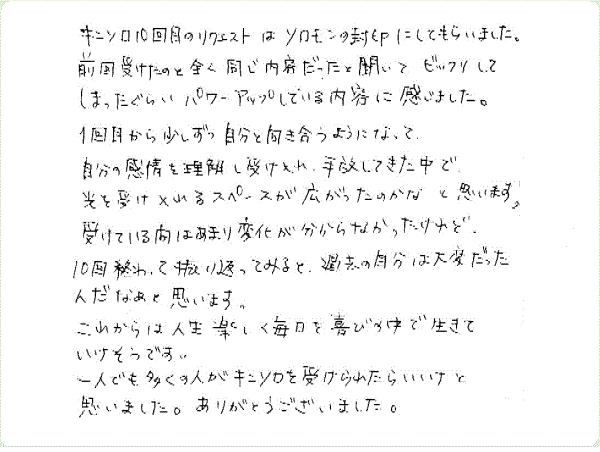 キンソロ10回目のリクエストは ソロモンの封印にしてもらいました。
前回受けたのと全く同じ内容だったと聞いて ビックリして
しまったぐらい パワーアップしている内容に感じました。
1回目から少しずつ自分と向き合うようになって、
自分の感情を理解し受け入れ、手放してきた中で、
光を受け入れるスペースが広がったのかな と思います。
受けている間はあまり変化が分からなかったけれど、
10回終わって振り返ってみると、過去の自分は大変だった
人だなあと思います。
これからは人生楽しく毎日を喜びの中で生きて
いけそうです。
一人でも多くの人がキンソロを受けられたらいいなと
思いました。ありがとうございました。